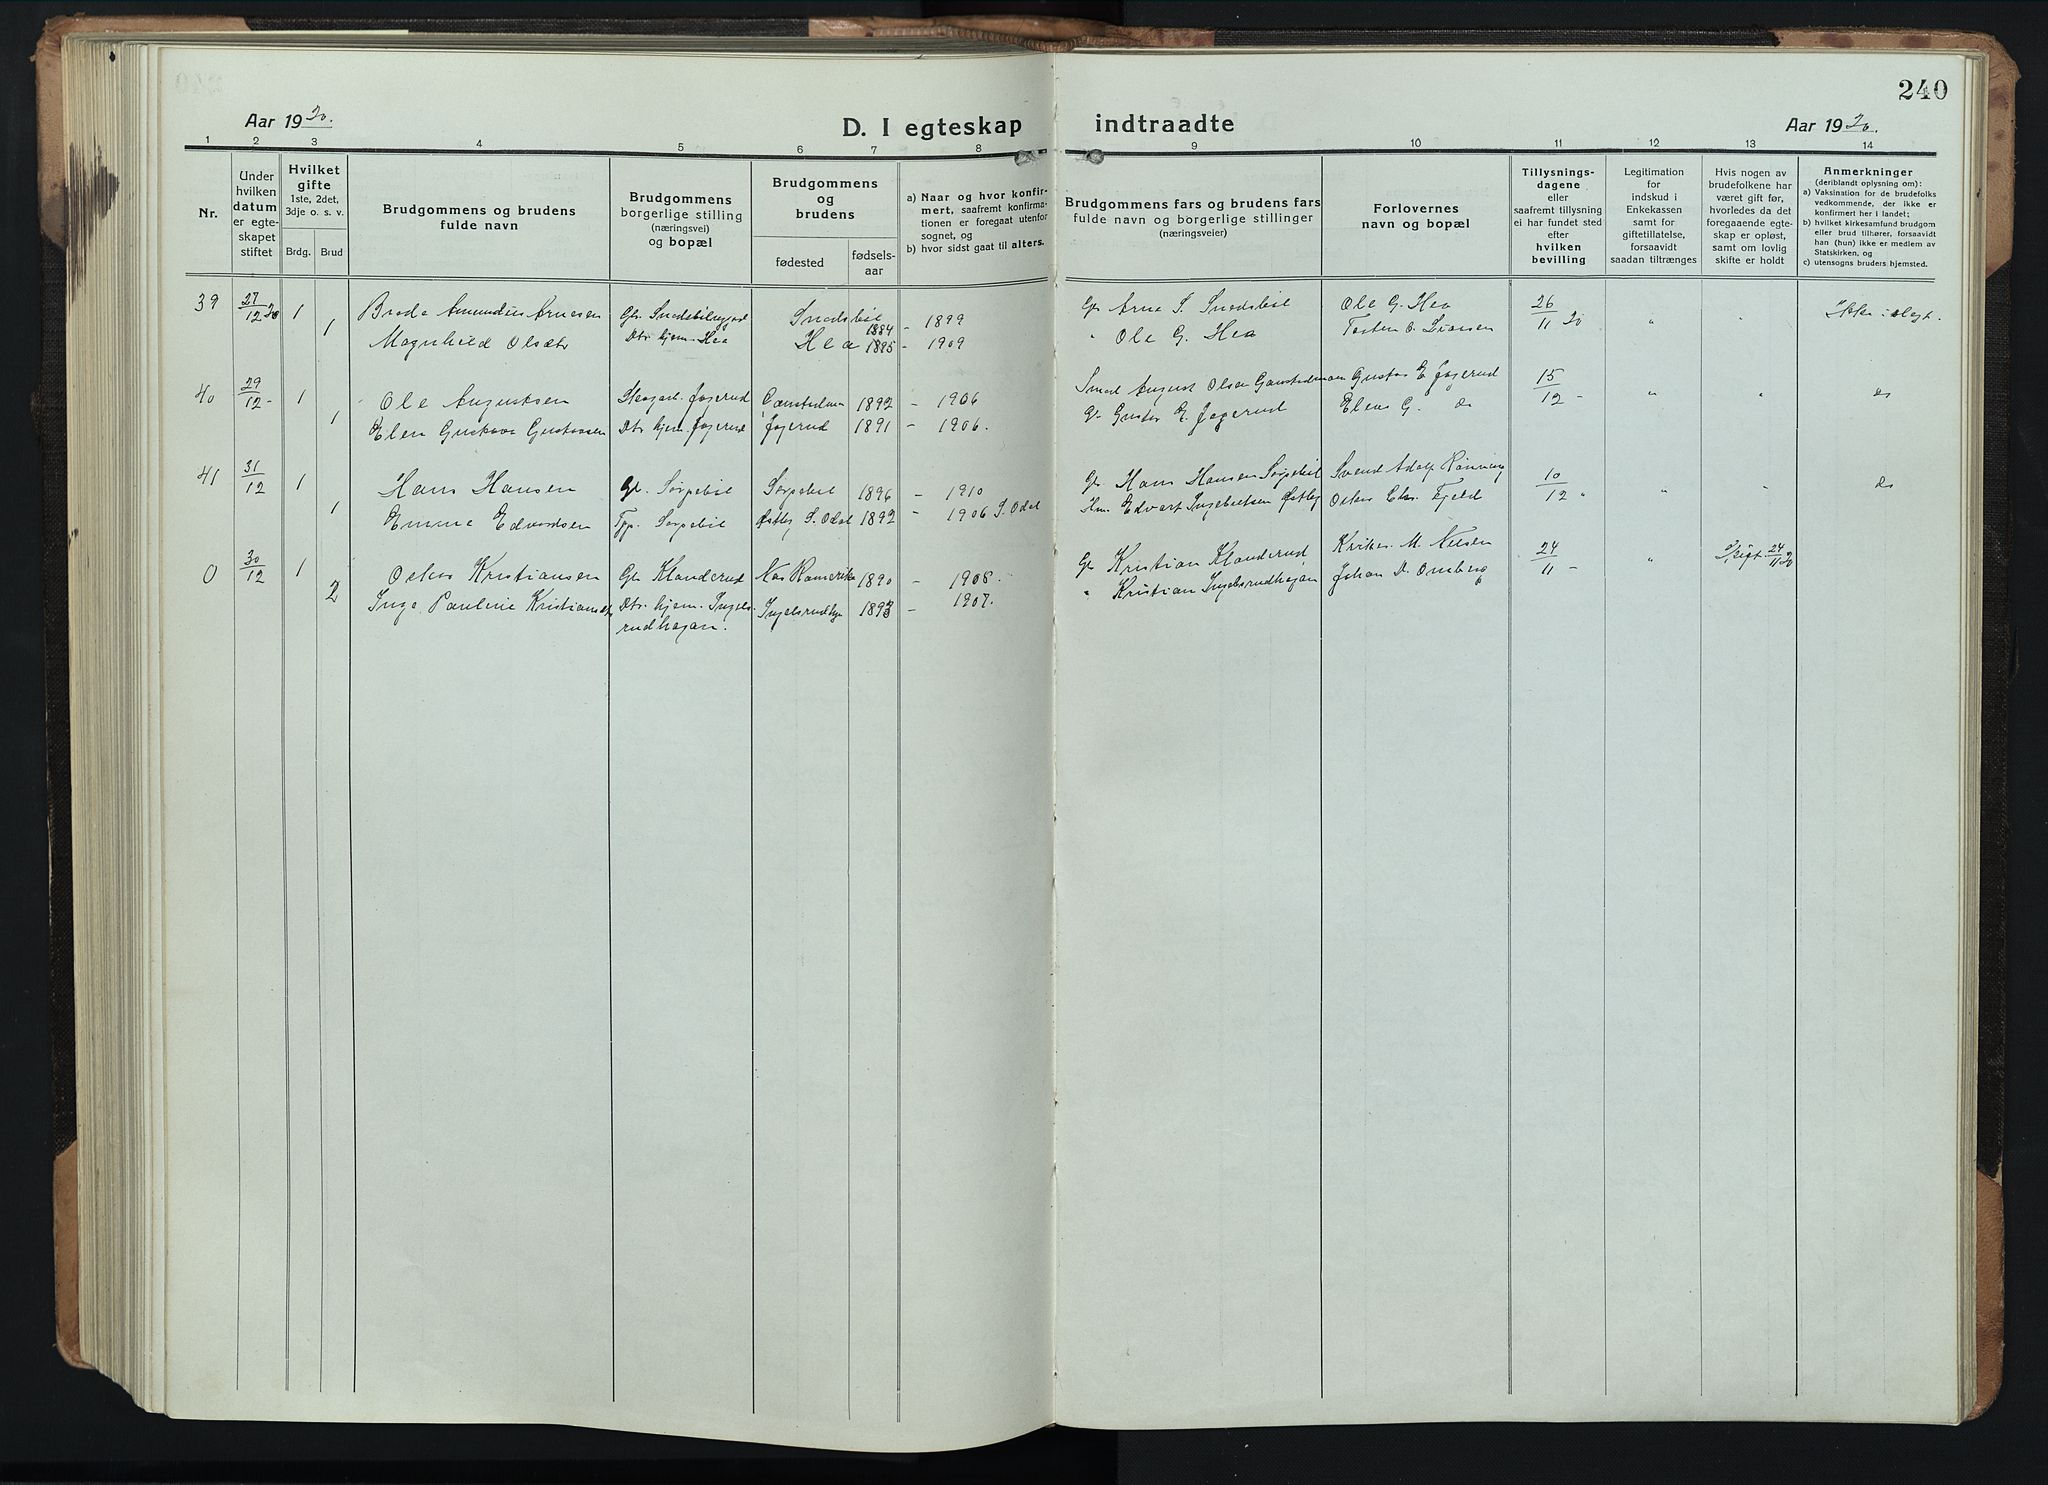 240
Aar 1920.
D. I egteskap indtraadte
Aar 1920.
1 2 3 4 5 6 7 8 9 10 11 12 13 14
Nr.
Under hvilken datum er egte-skapet stiftet
Hvilket gifte 1ste, 2det, 3dje o. s. v.
Brdg. Brud
Brudgommens og brudens fulde navn
Brudgommens borgerlige stilling (næringsvei) og bopæl
Brudgommens og brudens
fødested
fødsels-aar
a) Naar og hvor konfir-mert, saafremt konfirma-tionen er foregaat utenfor sognet, og
b) hvor sidst gaat til alters.
Brudgommens fars og brudens fars fulde navn og borgerlige stillinger (næringsveier)
Forlovernes navn og bopæl
Tillysnings-dagene eller saafremt tillysning ei har fundet sted efter hvilken bevilling
Legitimation for indskud i Enkekassen for giftetillatelse, forsaavidt saadan tiltrænges
Hvis nogen av brudefolkene har været gift før, hvorledes da det foregaaende egte-skap er opløst, samt om lovlig skifte er holdt
Anmerkninger (deriblandt oplysning om):
a) Vaksination for de brudefolks vedkommende, der ikke er konfirmert her i landet;
b) hvilket kirkesamfund brudgom eller brud tilhører, forsaavidt han (hun) ikke er medlem av Statskirken, og
c) utensogns bruders hjemsted.
39 27/12 20 1 Brede Amundius Arnesen Gbr. Snedsbølnygard Snedsbøl 1884 - 1899 Gbr Arne S. Snedsbøl Ole G. Hea 26/11 20 " " Ikke i slegt.
1 Magnhild Olsdtr Dtr hjem. Hea Hea 1895 - 1909 " Ole G. Hea
40 29/12 - 1 Ole Augustsen Jagerud 1892 - 1906 Smed August Olsen Gustav E. Jagerud 15/12 - " " do
1 Elen Gustava Gustavsen Dtr hjem. Jagerud Jagerud 1891 - 1906. Gbr Gustav E. Jagerud Elias G. do
41 31/12 1 Hans Hansen Gbr. Sørpebøl Sørpebøl 1896 - 1910 Gbr Hans Hansen Sørpebøl Svend Adolf Rønning 10/12 " " " do
1 Emma Edvardsen Tpp. Sørpebøl Østby S. Odal 1892 - 1906 S. Odal Hm. Edvart Ingebretsen Østby Oskar Chr. Fjeld
0 30/12 1 Oskar Kristiansen Gbr Klanderud Nes Romerike 1890 - 1908. Gbr Kristian Klanderud M. Nilsen 24/11 - " Skigt. 24/11 20
2 Inga Pauline Kristiansdtr Dtr. hjem. Ingels-Ingelsrudhgn 1893 - 1907. " Kristian Ingelsrudhagan Johan D. Omberg
rudhagan.